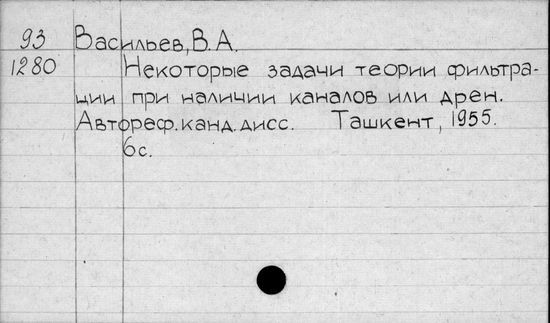 93 Васильев, В.А.
1280 Некоторые задачи теории фильтра-
ции при наличии каналов или дрен.
Автореф. канд. дисс. Ташкент, 1955.
6с.